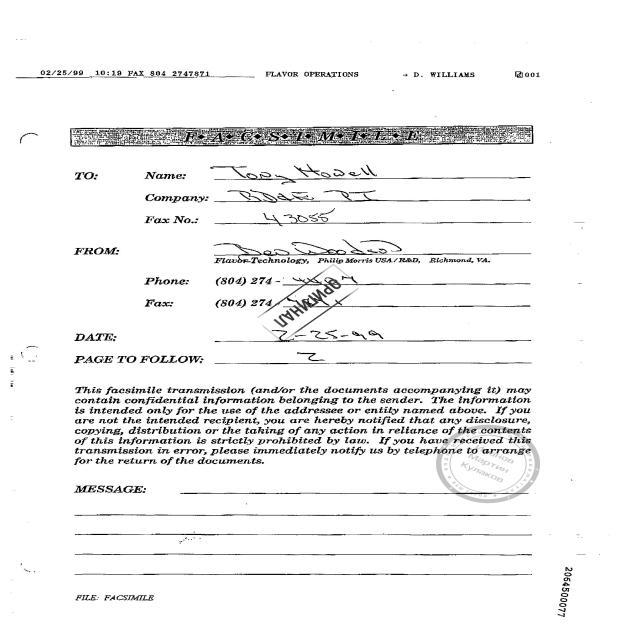 02/25/99 10:19 FAX 804 2747871 FLAVOR OPERATIONS → D. WILLIAMS 001
F•A•C•S•I•M•I•L•E
TO: Name: Tony Howell
Company:
Fax No.: 43055
FROM:
Flavor Technology, Philip Morris USA/R&D, Richmond, VA.
Phone: (804) 274 -
Fax: (804) 274
ОРИГИНАЛ
DATE: 2-25-99
PAGE TO FOLLOW: 2
This facsimile transmission (and/or the documents accompanying it) may
contain confidential information belonging to the sender. The information
is intended only for the use of the addressee or entity named above. If you
are not the intended recipient, you are hereby notified that any disclosure,
copying, distribution or the taking of any action in reliance of the contents
of this information is strictly prohibited by law. If you have received this
transmission in error, please immediately notify us by telephone to arrange
for the return of the documents.
Мартин
Кулаков
MESSAGE:
FILE: FACSIMILE
2064500077